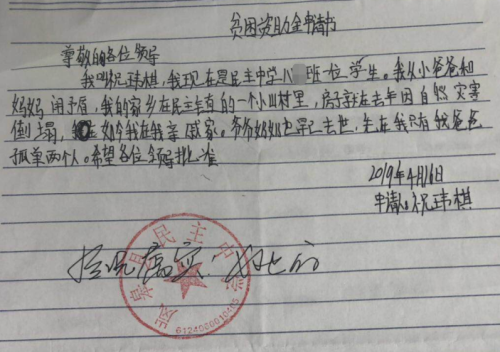 贫困资助金申请书
尊敬的各位领导
我叫祝玮棋，我现在是民主中学八 班一位学生。我从小爸爸和
妈妈闹矛盾，我的家乡在民主镇的一个小山村里，房子在去年因自然灾害
倒塌，如今我在我亲戚家。爷爷奶奶也早已去世，现在我只有我爸爸
孤单两个人。希望各位领导批准
2019年4月16日
申请人：祝玮棋
情况属实
岚皋县民主中学